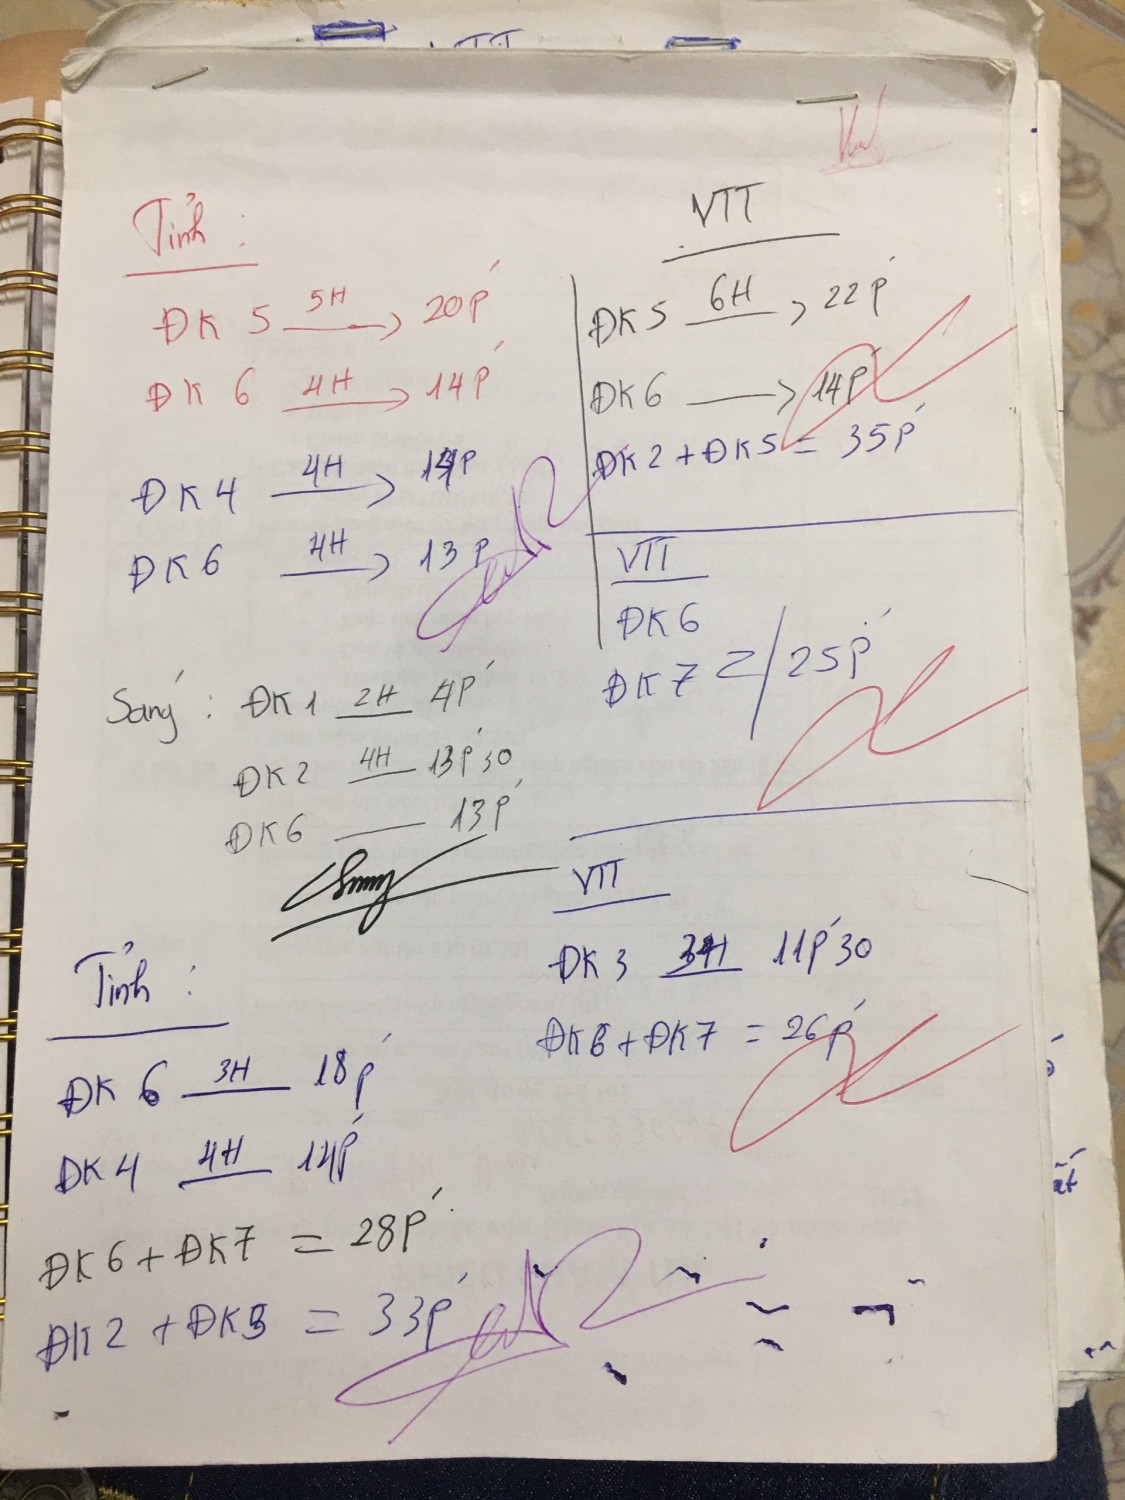 VTT
Tỉnh :
ĐK 5 5H → 20p'
ĐK 6 4H → 14p'
ĐK 4 4H → 14p
ĐK 6 4H → 13p
Sáng : ĐK 1 2H 4p'
ĐK 2 4H 13p'30
ĐK 6 — 13p'
Tỉnh :
ĐK 6 3H 18p'
ĐK 4 4H 14p'
ĐK 6 + ĐK 7 = 28p'
ĐK 2 + ĐK 3 = 33p'
VTT
ĐK 5 6H → 22p'
ĐK 6 → 14p'
ĐK 2 + ĐK 5 = 35p'
VTT
ĐK 6
ĐK 7 = / 25p'
VTT
ĐK 3 3H 11p'30
ĐK 6 + ĐK 7 = 26p'